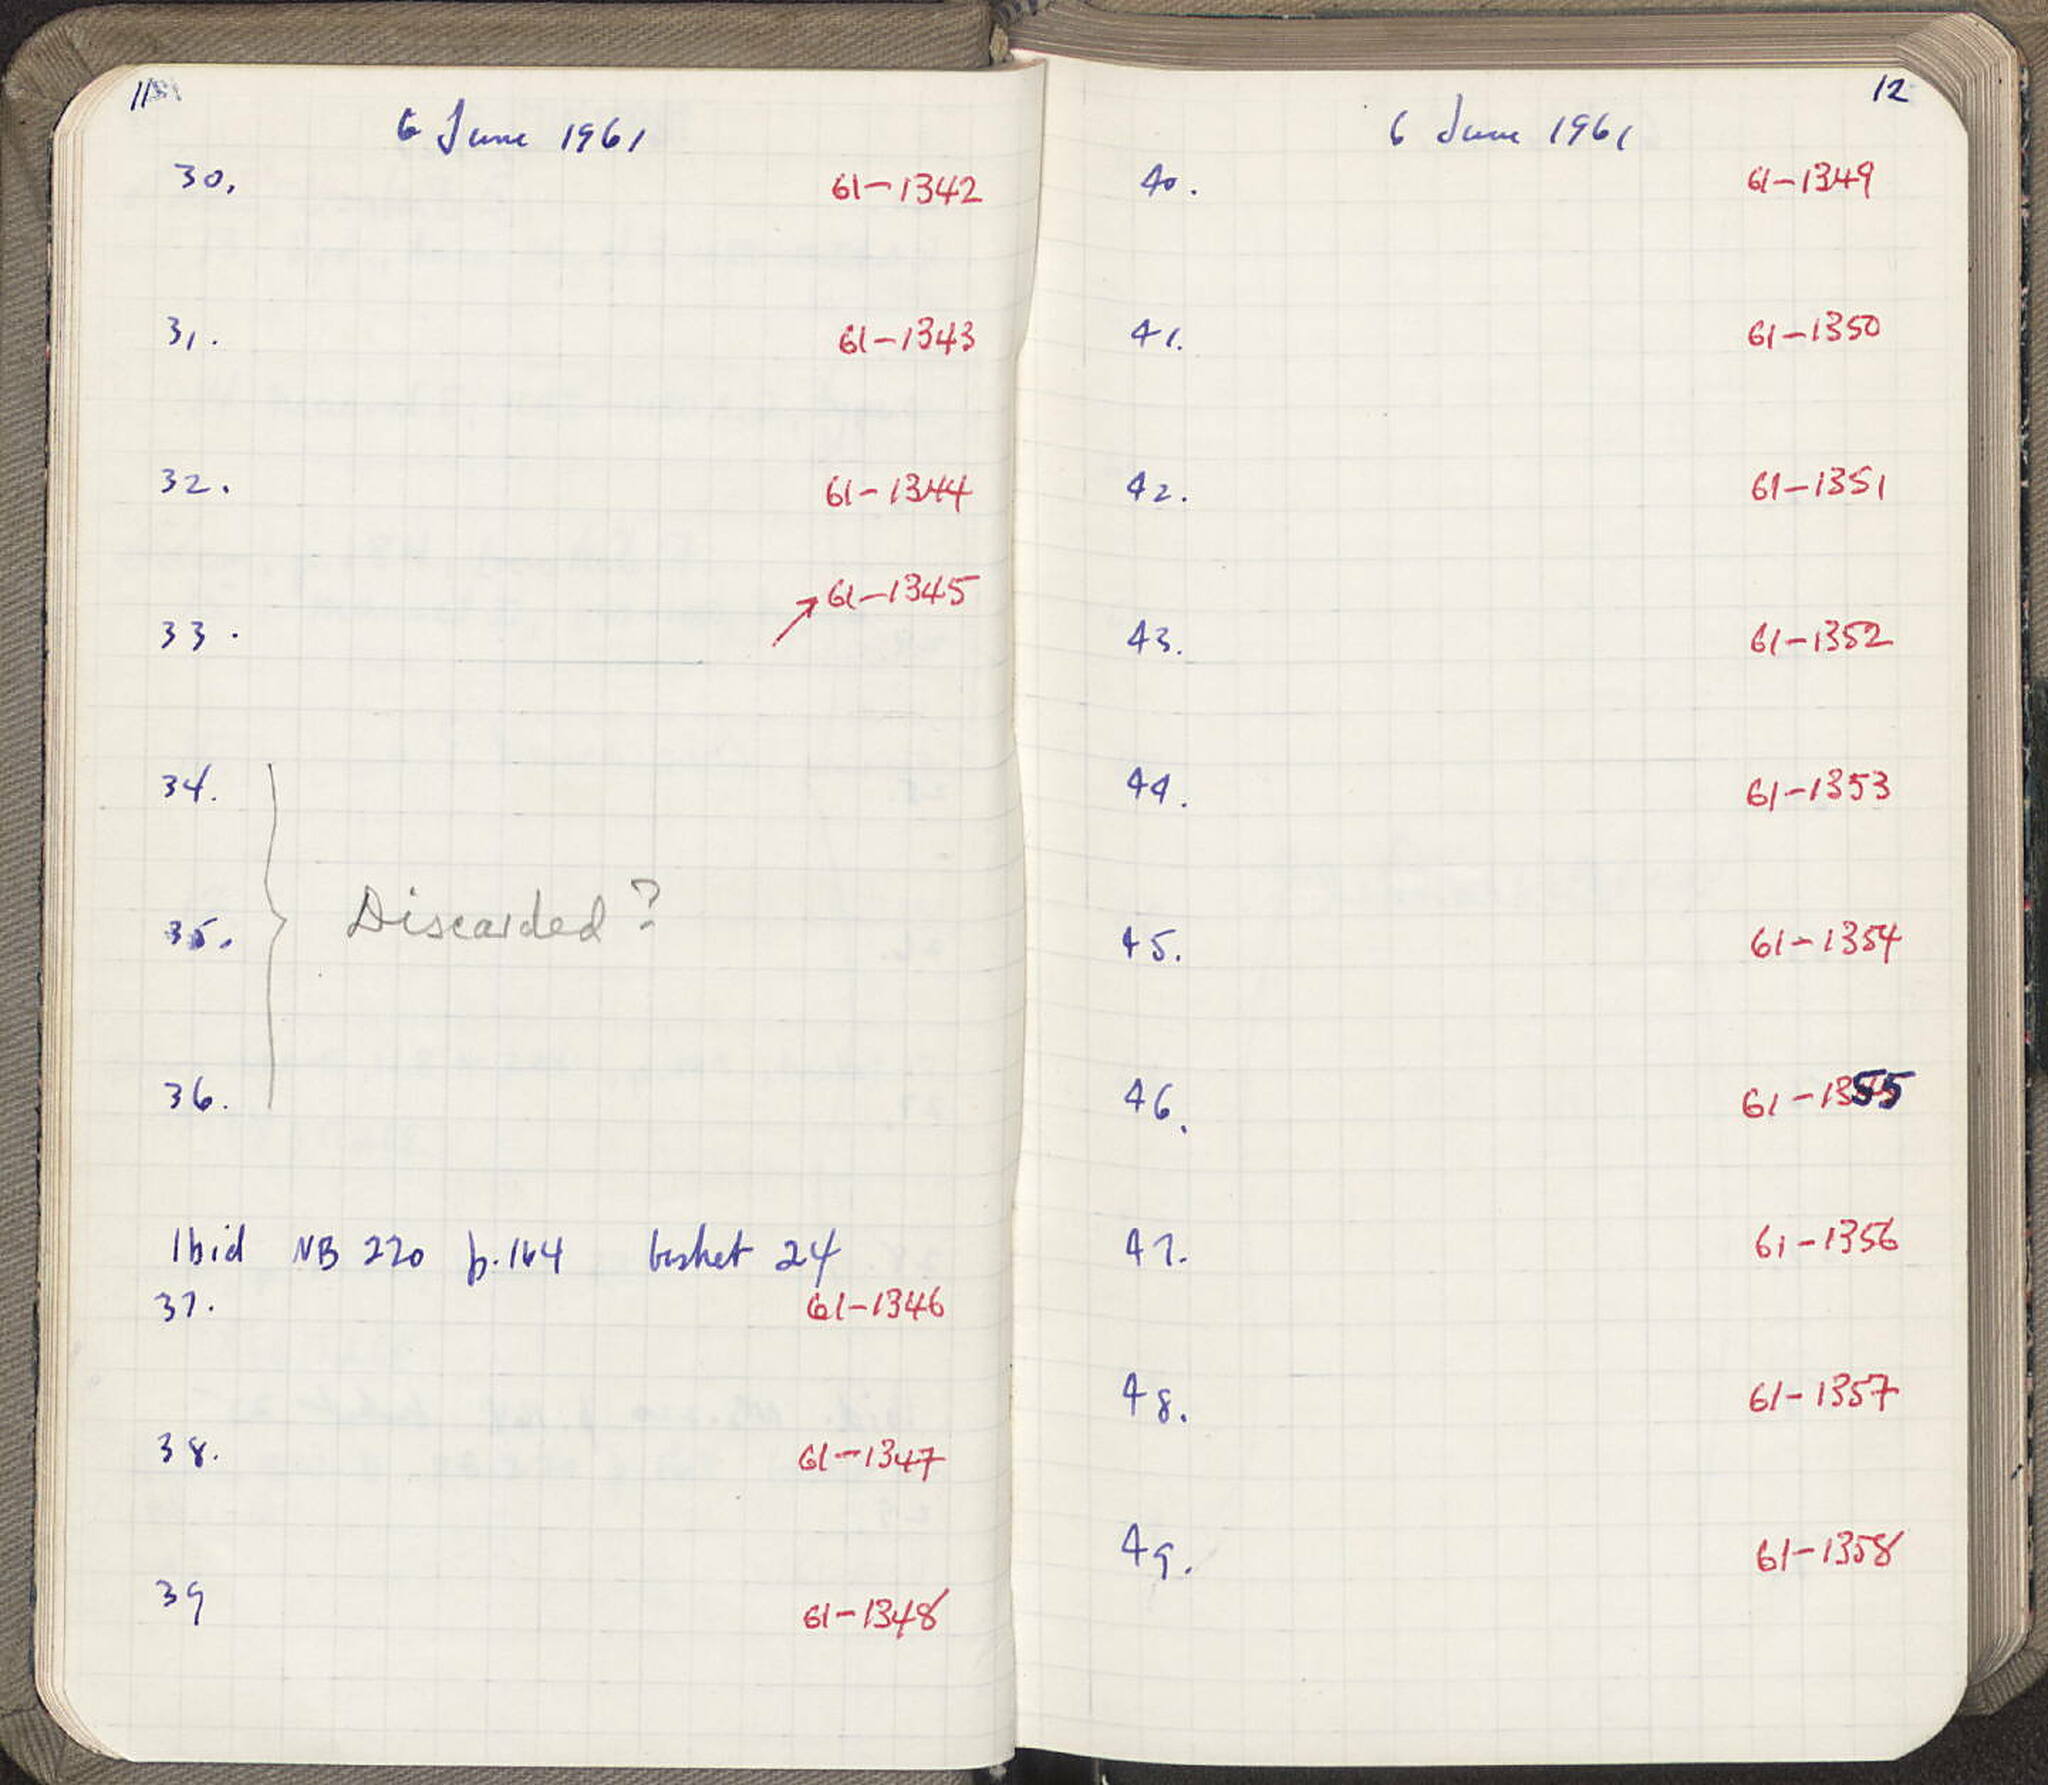 11
6 June 1961
30. 61-1342
31. 61-1343
32. 61-1344
61-1345
33.
34.
Discarded?
35.
36.
Ibid NB 220 p.164 basket 24
37. 61-1346
38. 61-1347
39 61-1348
12
6 June 1961
40. 61-1349
41. 61-1350
42. 61-1351
43. 61-1352
44. 61-1353
45. 61-1354
46. 61-1355
47. 61-1356
48. 61-1357
49. 61-1358